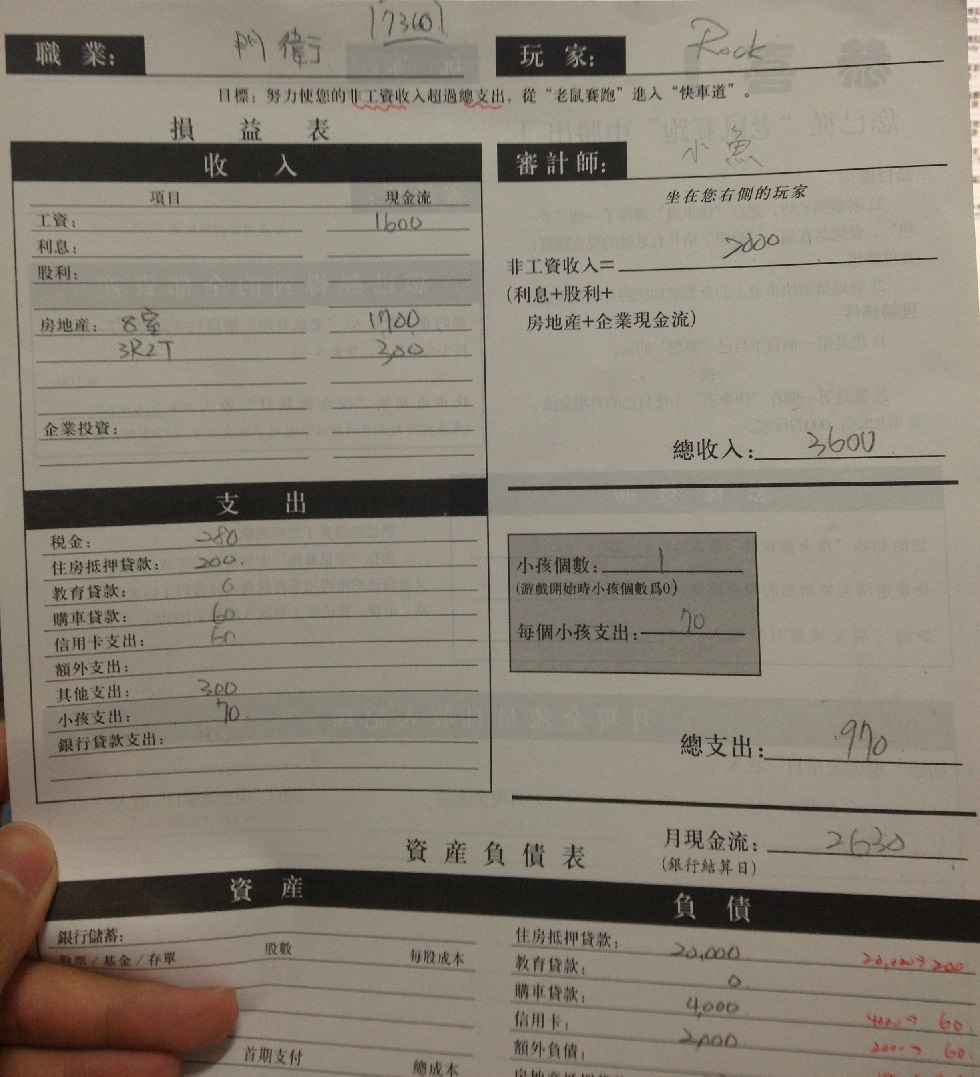 職業： 門衛 17360 玩家： Rock
目標：努力使您的非工資收入超過總支出，從“老鼠賽跑”進入“快車道”。
損益表
收入
項目 現金流
工資： 1600
利息：
股利：
房地產： 8室 1700
3R2T 300
企業投資：
審計師： 小魚
坐在您右側的玩家
非工資收入= 2000
(利息+股利+
房地產+企業現金流)
總收入： 3600
支出
稅金： 280
住房抵押貸款： 200
教育貸款： 0
購車貸款： 60
信用卡支出： 60
額外支出：
其他支出： 300
小孩支出： 70
銀行貸款支出：
小孩個數： 1
(游戲開始時小孩個數爲0)
每個小孩支出： 70
總支出： 970
資產負債表
月現金流： 2630
(銀行結算日)
資產
銀行儲蓄：
股票/基金/存單 股數 每股成本
首期支付 總成本
負債
住房抵押貸款： 20,000
教育貸款： 0
購車貸款： 4,000
信用卡： 2,000
額外負債：
20,000→200
4000→60
2000→60